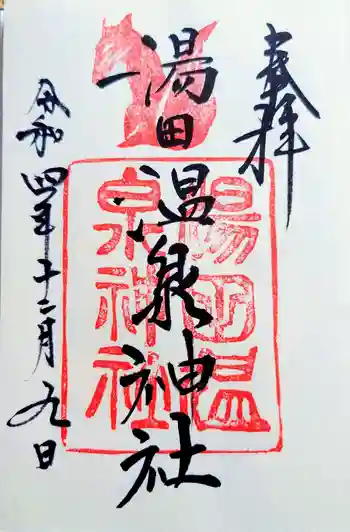 奉拝
湯田温泉神社
湯田温
泉神社
令和四年十二月九日